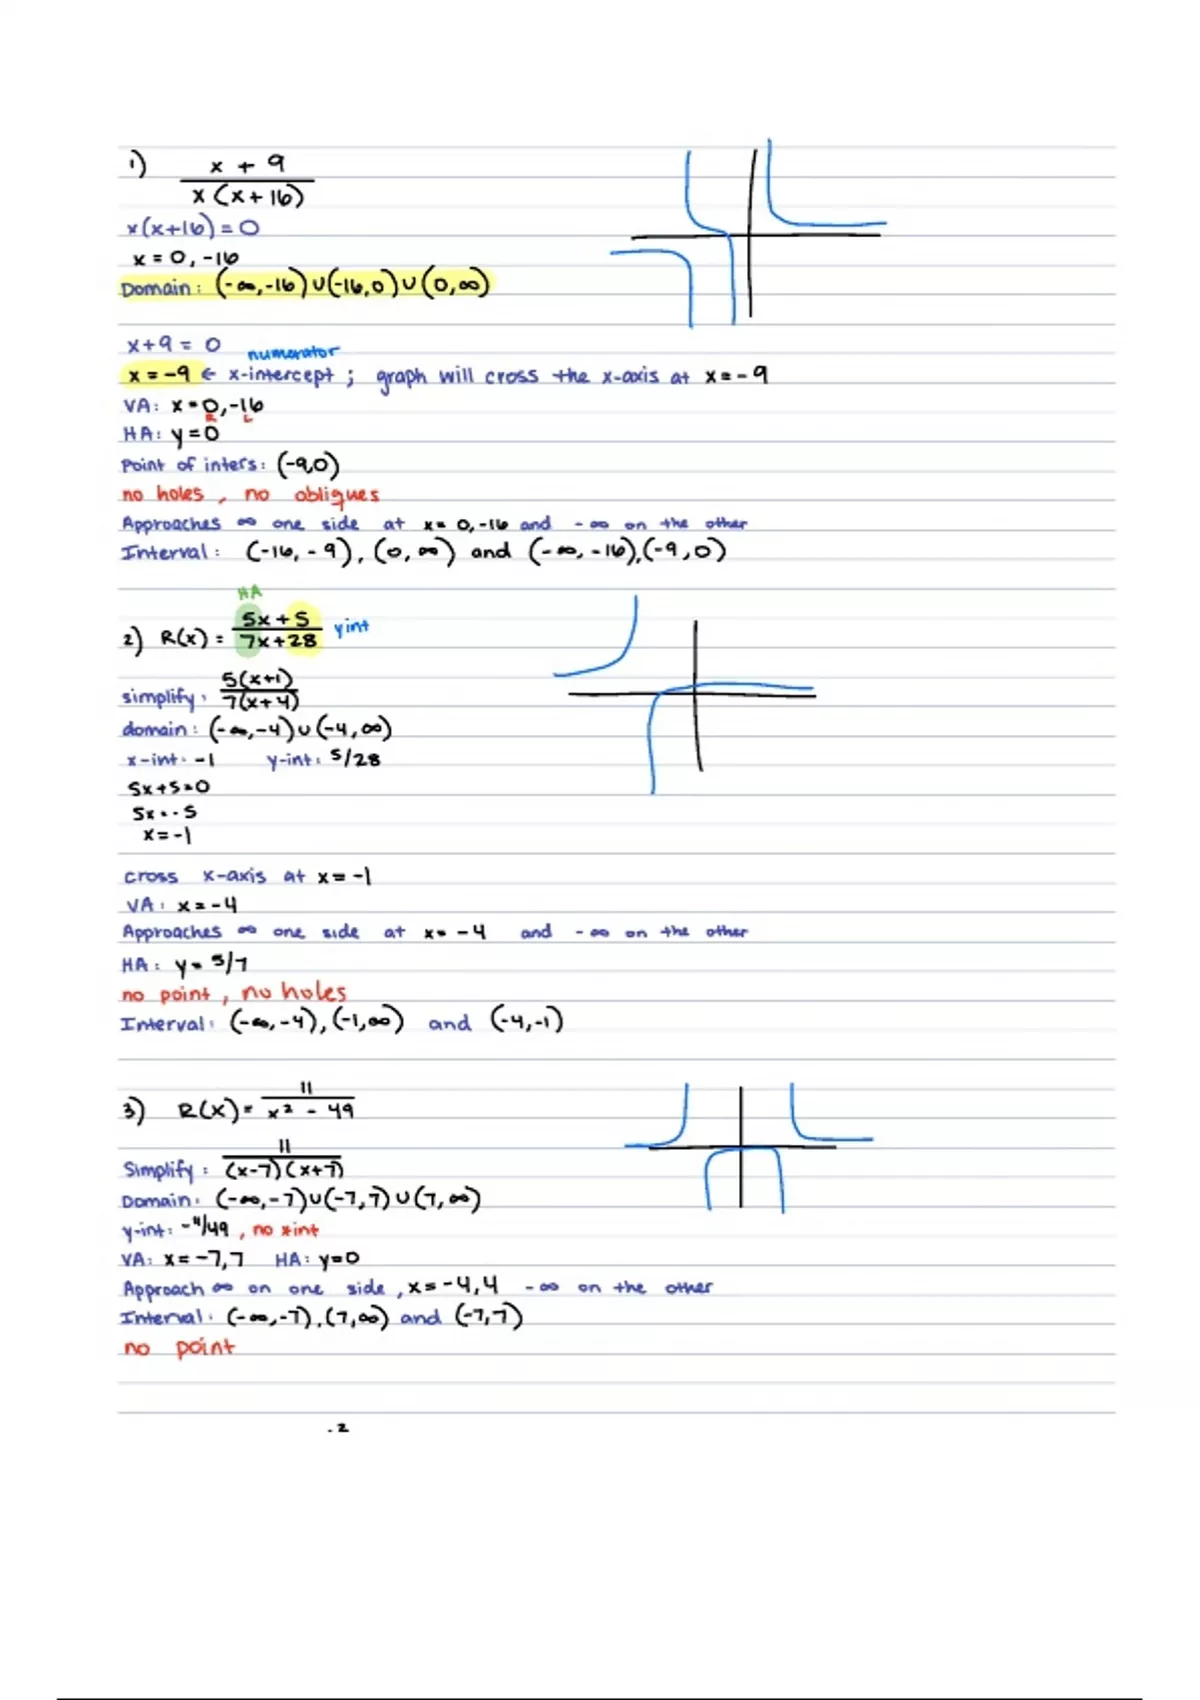 1) x + 9
x(x+16)
x(x+16) = 0
x = 0, -16
Domain: (-∞,-16)∪(-16,0)∪(0,∞)
x+9 = 0
numerator
x = -9 ← x-intercept ; graph will cross the x-axis at x = -9
VA: x = 0, -16
R L
HA: y = 0
Point of inters: (-9,0)
no holes , no obliques
Approaches ∞ one side at x = 0, -16 and -∞ on the other
Interval: (-16, -9), (0, ∞) and (-∞, -16), (-9, 0)
HA
2) R(x) = 5x + 5 / 7x + 28 y int
simplify: 5(x+1) / 7(x+4)
domain: (-∞,-4)∪(-4,∞)
x-int: -1 y-int: 5/28
5x+5=0
5x = -5
x = -1
cross x-axis at x = -1
VA: x = -4
Approaches ∞ one side at x = -4 and -∞ on the other
HA: y = 5/7
no point, no holes
Interval: (-∞,-4), (-1,∞) and (-4,-1)
3) R(x) = 11 / x² - 49
Simplify: 11 / (x-7)(x+7)
Domain: (-∞,-7)∪(-7,7)∪(7,∞)
y-int: -11/49, no xint
VA: x = -7,7 HA: y=0
Approach ∞ on one side, x = -4,4 -∞ on the other
Interval: (-∞,-7), (7,∞) and (-7,7)
no point
.2